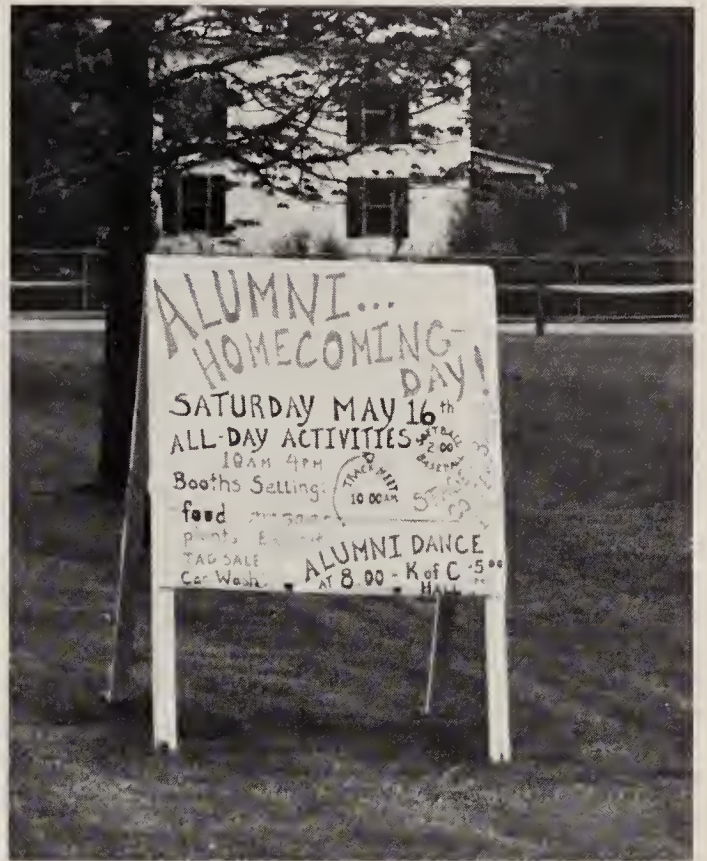 ALUMNI...
HOMECOMING-
DAY!
SATURDAY MAY 16th
ALL-DAY ACTIVITIES
10AM 4PM
Booths Selling:
food
plants
TAG SALE
Car Wash
TRACK MEET
10 00 AM
2:00
BASEBALL
ALUMNI DANCE
AT 8.00 - K of C -5.00
HALL